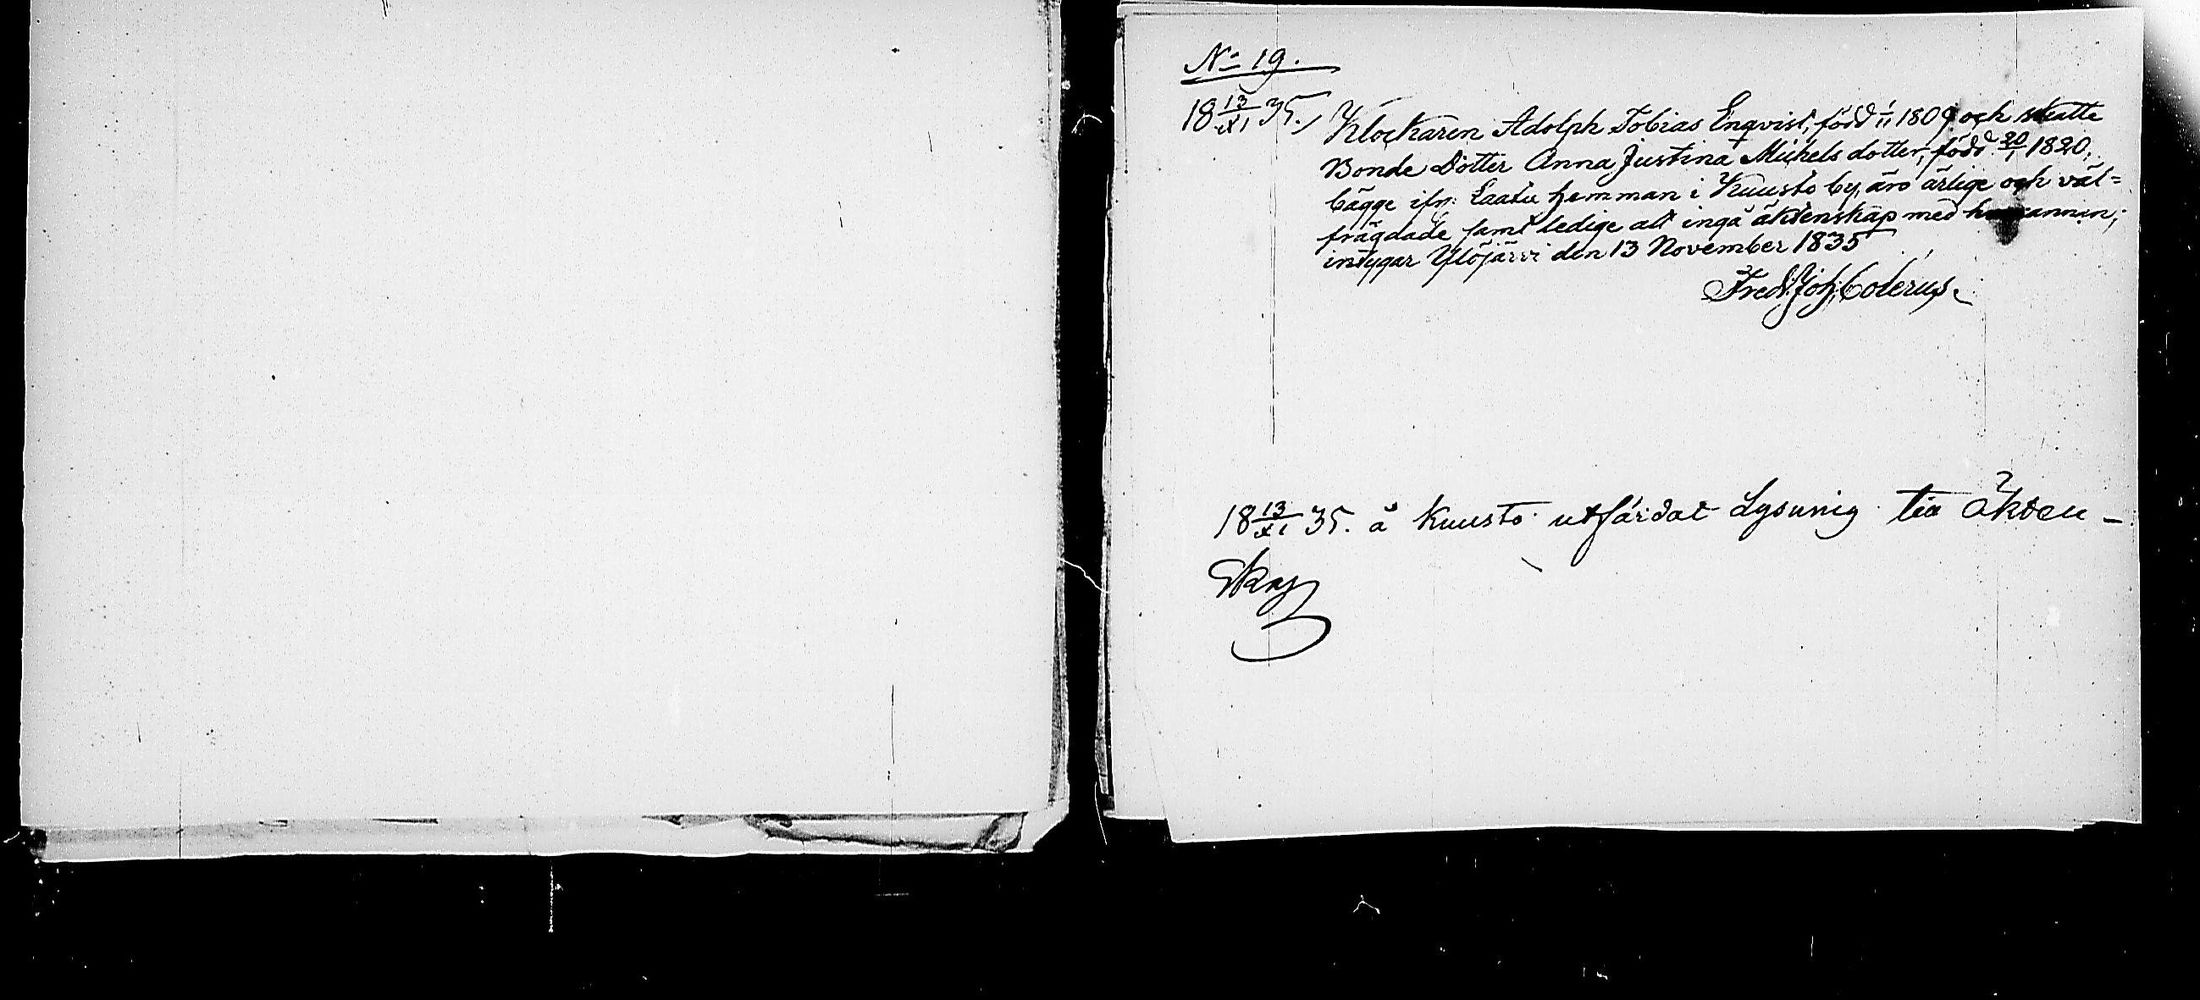 No 19.
18 13/XI 35.
Klockaren Adolph Tobias Enqvist, född 1809 och skatte
Bonde Dotter Anna Justina Michels dotter, född 20/1 1820,
bägge ifn. Laatu hemman i Kuusto by, äro ärlige och väl-
frägdade samt ledige att ingå äktenskap med hvarannan;
intygar Ylöjärvi den 13 November 1835
Fredr. Joh. Colerus.
18 13/XI 35. å Kuusto utfärdat Lysning till Äkten-
skap